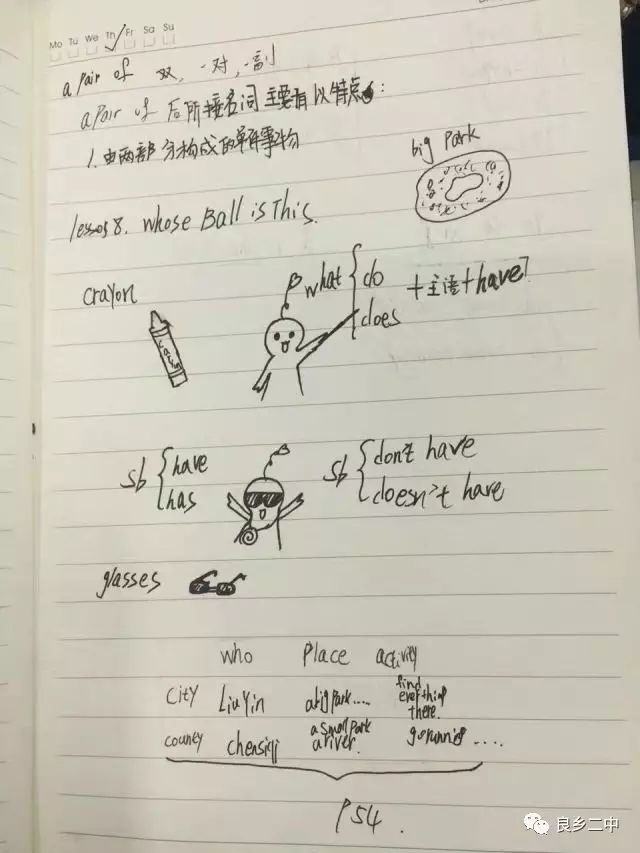 Mo Tu We Th Fr Sa Su
a pair of 双, 一对, 一副
a pair of 后所接名词主要有以特点:
1.由两部分构成的单件事物
big park
lesson 8. whose Ball is This.
crayon
what do does +主语+have?
sb have has
sb don't have doesn't have
glasses
who place activity
city Liu Yin a big park..... find everything there.
couney chensiqi a small park a river. go running ....
P54.
良乡二中